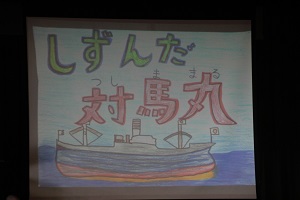 しずんだ
つしままる
対馬丸